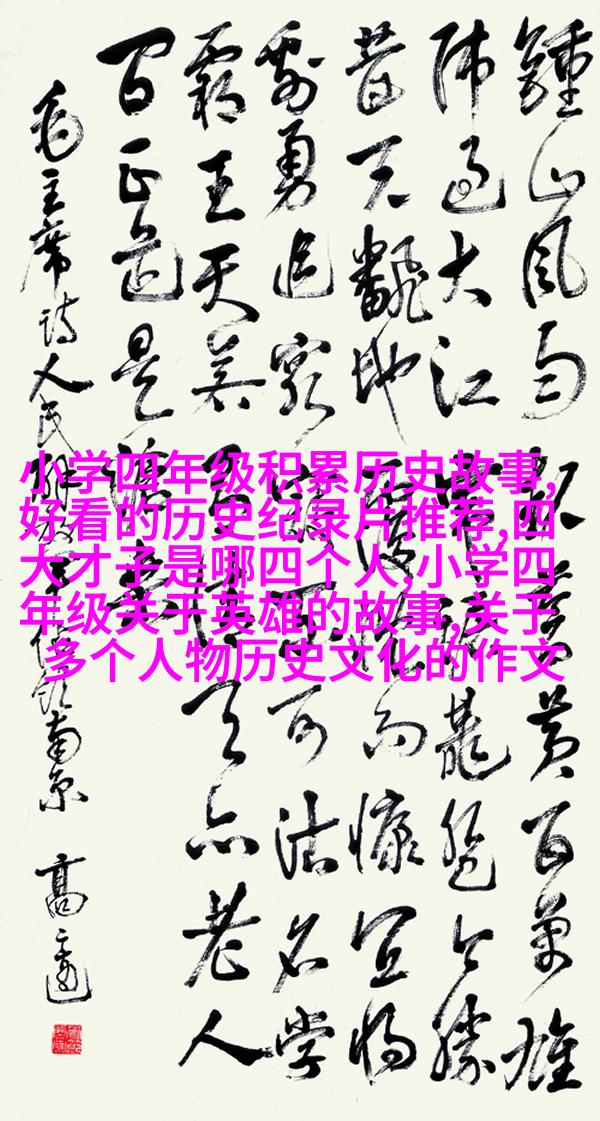 鍾山风雨起蒼黄百萬雄
师过大江虎踞龍盤今勝
昔天翻地覆慨而慷宜将
剩勇追窮寇不可沽名学
霸王天若有情天亦老人
间正道是滄桑
毛主席诗人民解放軍佔领南京 高
小学四年级积累历史故事,
好看的历史纪录片推荐,四
大才子是哪四个人,小学四
年级关于英雄的故事,关于
多个人物历史文化的作文